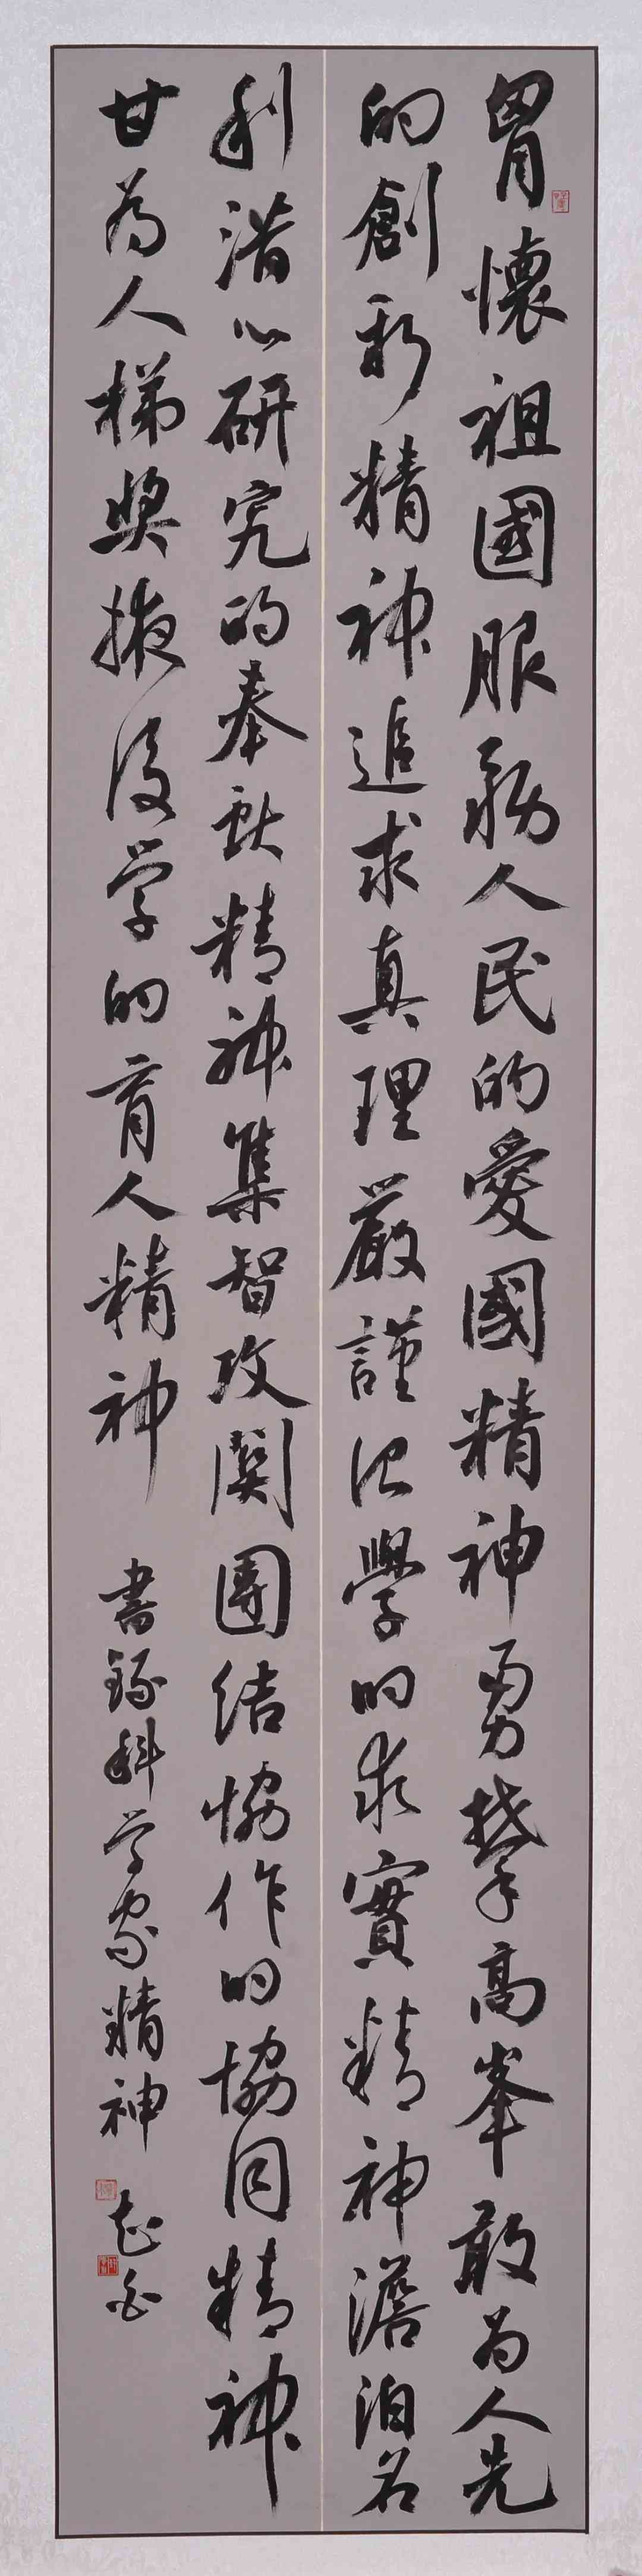 胷懷祖國服務人民的愛國精神勇攀高峯敢为人先
的創新精神追求真理嚴謹治學的求實精神澹泊名
利潜心研究的奉献精神集智攻關團結恊作的協同精神
甘为人梯奬掖後学的育人精神 書録科学家精神